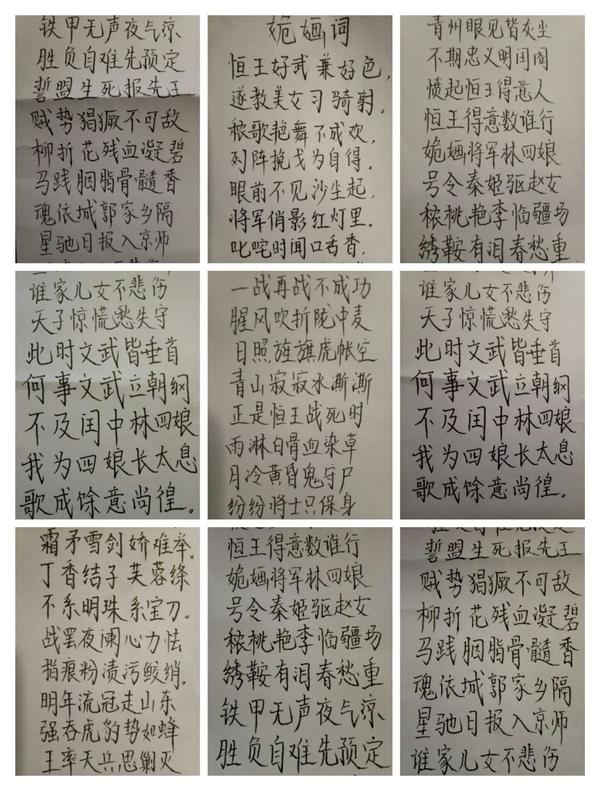 铁甲无声夜气凉
胜负自难先预定
誓盟生死报先王
贼势猖獗不可敌
柳折花残血凝碧
马践胭脂骨髓香
魂依城郭家乡隔
星驰日报入京师
姽婳词
恒王好武兼好色，
遂教美女习骑射。
秾歌艳舞不成欢，
列阵挽戈为自得。
眼前不见沙尘起，
将军俏影红灯里。
叱咤时闻口舌香，
青州眼见皆灰尘
不期忠义明闺阁
愤起恒王得意人
恒王得意数谁行
姽婳将军林四娘
号令秦姬驱赵女
秾桃艳李临疆场
绣鞍有泪春愁重
谁家儿女不悲伤
天子惊慌愁失守
此时文武皆垂首
何事文武立朝纲
不及闺中林四娘
我为四娘长太息
歌成馀意尚徨。
一战再战不成功
腥风吹折陇中麦
日照旌旗虎帐空
青山寂寂水澌澌
正是恒王战死时
雨淋白骨血染草
月冷黄昏鬼守尸
纷纷将士只保身
谁家儿女不悲伤
天子惊慌愁失守
此时文武皆垂首
何事文武立朝纲
不及闺中林四娘
我为四娘长太息
歌成馀意尚徨。
霜矛雪剑娇难举。
丁香结子芙蓉绦
不系明珠系宝刀。
战罢夜阑心力怯
指痕粉渍污鲛绡。
明年流寇走山东
强吞虎豹势如蜂
王率天兵思剿灭
恒王得意数谁行
姽婳将军林四娘
号令秦姬驱赵女
秾桃艳李临疆场
绣鞍有泪春愁重
铁甲无声夜气凉
胜负自难先预定
誓盟生死报先王
贼势猖獗不可敌
柳折花残血凝碧
马践胭脂骨髓香
魂依城郭家乡隔
星驰日报入京师
谁家儿女不悲伤